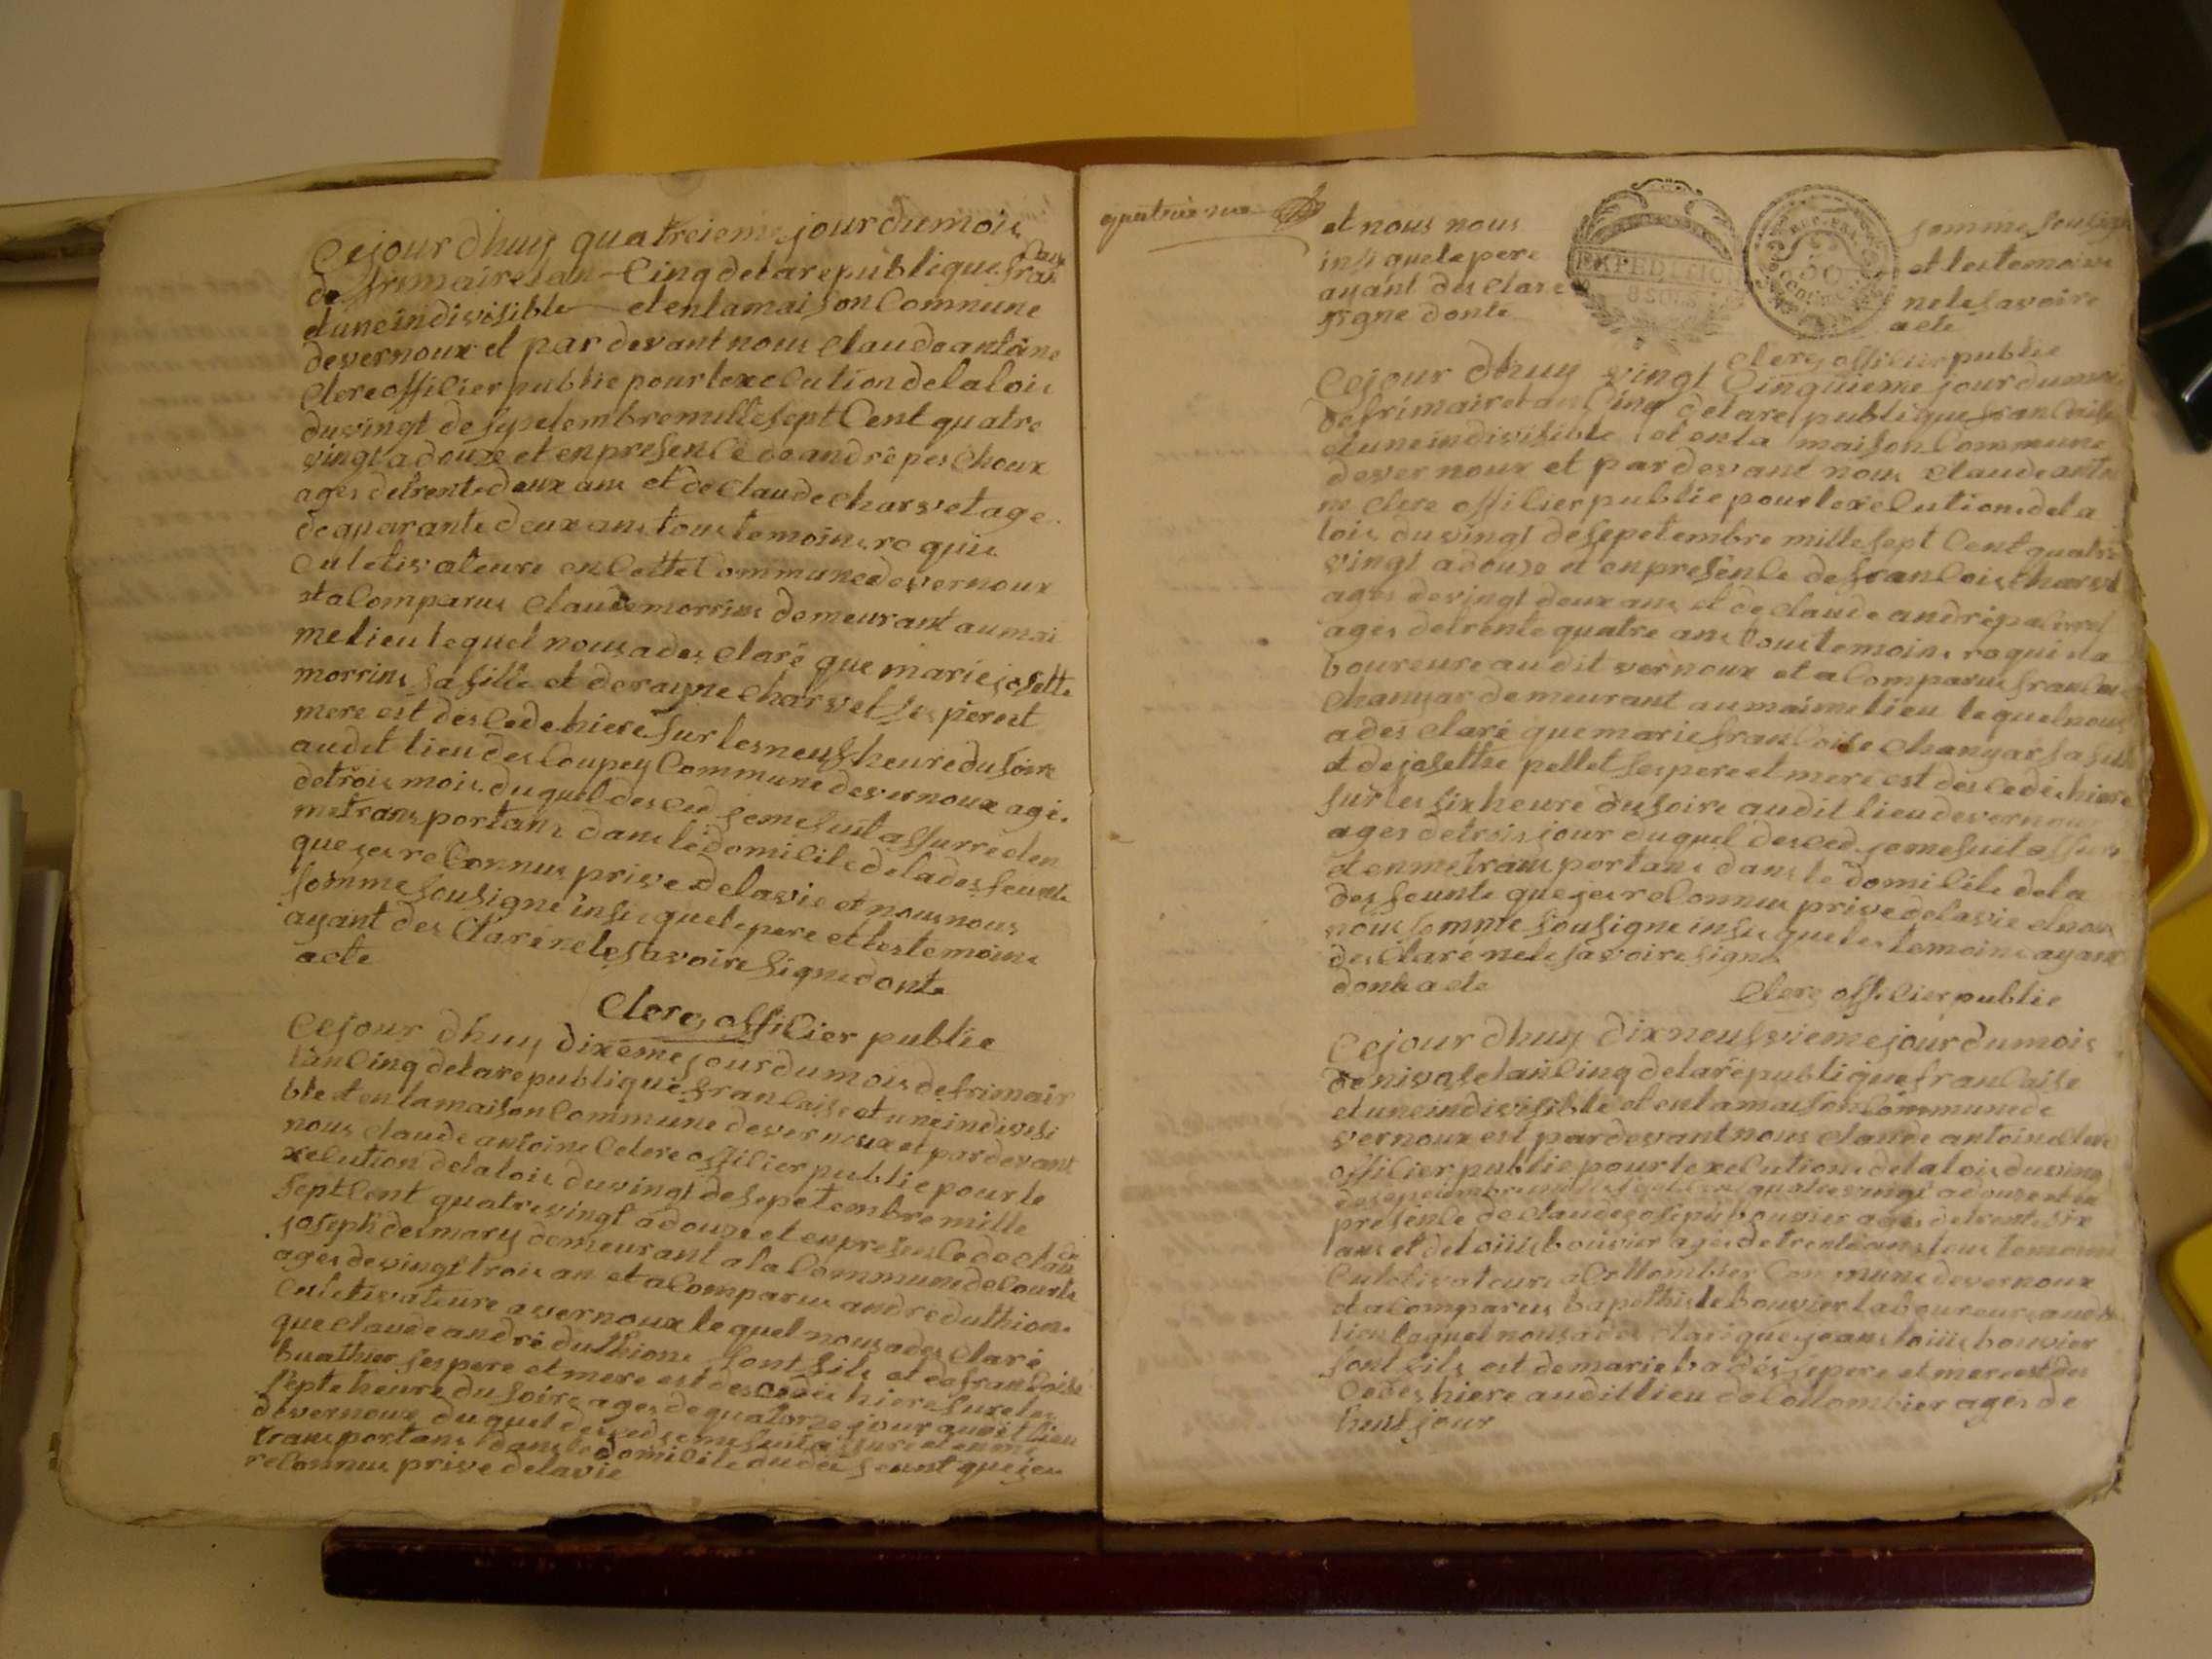 Cejour dhuy quatreieme jour dumois
de frimaire lan Cinq de la republique fran Caise
et une indivisible et en la maison Commune
de vernoux et par devant nous Claude antoine
Clerc offilier publie pour lexelution de la lois
du vingt de sepetembre mille sept Cent quatre
vingt a douze et en presen Ce de andré peschoux
ages de trente deux ans et de Claude Charvet age
de quarante deux ans tous temoins re quis
Culetivateure en Cette Commune de vernoux
et a Comparus Claude morrins demeurant au mai
me lieu le quel nous a des Claré que marie josette
morrins sa fille et de rayne Charvet ses pere et
mere est des Cede hiere sur les neuf heure du soire
au dit lieu des Coupey Commune de vernoux agé
de trois mois du quel des ced je me suit assurre d en
me trans portans dans le domilile de la des feunte
que jes re Connus prive de la vie et nous nous
somme sousigne insis que le pere et les temoins
ayant des Clare ne le savoire signe donte
acte
Clerc offilier publie
Cejour dhuy dixeme jour du mois de frimair
lan Cinq de la republique fran Caise et une indivisi
ble et en la maison Commune de vernoux et par devant
nous Claude antoine Celerc offilier publie pour le
xelution de la lois du vingt de sepetembre mille
sept Cent quatre vingt a douze et en presen Ce de Clau de
joseph desmary demeurant a la Commune de Courte
ages de vingt trois an et a Comparus andre duthion
Culetivateure a vernoux le quel nous a des Claré
que Claude andré duthions sont fils et de francoise
buathier ses pere et mere est des Cedés hiere sur les
septe heure du soire ages de quatorze jour au dit lieu
de vernoux du quel des ced je me suit assure et en me
trans portans dans le domilile du des feunt que jes
re Connus prive de la vie
quatrieme
et nous nous somme sousigne
insi que le pere et les temoins
ayant des Clare ne le savoire
signe donte acte
EXPEDITION
8 SOLS
REP. FRA.
50
Centimes
Clerc offilier publie
Cejour dhuy vingt Cinquieme jour du mois
de frimaire lan Cinq de la re publique fran Caise
et une indivisible et en la maison Commune
de vernoux et par devant nous Claude antoi
ne Clerc offilier publie pour lexelutions de la
lois du vingt de sepetembre mille sept Cent quatre
vingt a douze et en presen Ce de fran Cois Charvet
ages de vingt deux ans et de Claude andré
ages de trente quatre ans tous temoins re quis la
boureure au dit vernoux et a Comparus fran Cois
Chanyar demeurant au maime lieu le quel nous
a des Claré que marie fran Coise Chanyar sa fille
et de josette pellet ses pere et mere est des Cedés hiere
sur les six heure du soire au dit lieu de vernoux
ages de trois jour du quel des ced je me suit assure
et en me trans portans dans le domilile de la
des feunte que jes re Connus prive de la vie et nous
nous somme sousigne insis que les temoins ayant
des Claré ne le savoire signe
donte acte
Clerc offilier publie
Cejour dhuy dix neufvieme jour du mois
de nivose lan Cinq de la republique fran Caise
et une indivisible et en la maison Commune de
vernoux est par devant nous Claude antoine Clerc
offilier publie pour lexelutions de la lois du vingt
de sepetembre mille sept Cent quatre vingt a douze et en
presen Ce de Claude joseph bouvier ages de trente six
ans et de louis bouvier ages de trente ans tous temoins
Culetivateure a Collombier Commune de vernoux
et a Comparus bapethiste bouvier laboureure au dit
lieu lequel nous a des Claré que jeans louis bouvier
sont fils est de marie ses pere et mere est des
Cedés hiere au dit lieu de Collombier ages de
huit jour